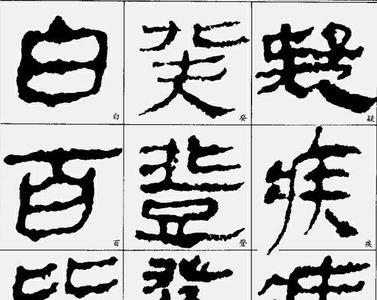 疑 疑
疾 疾
癸 癸
登 登
白 白
百 百